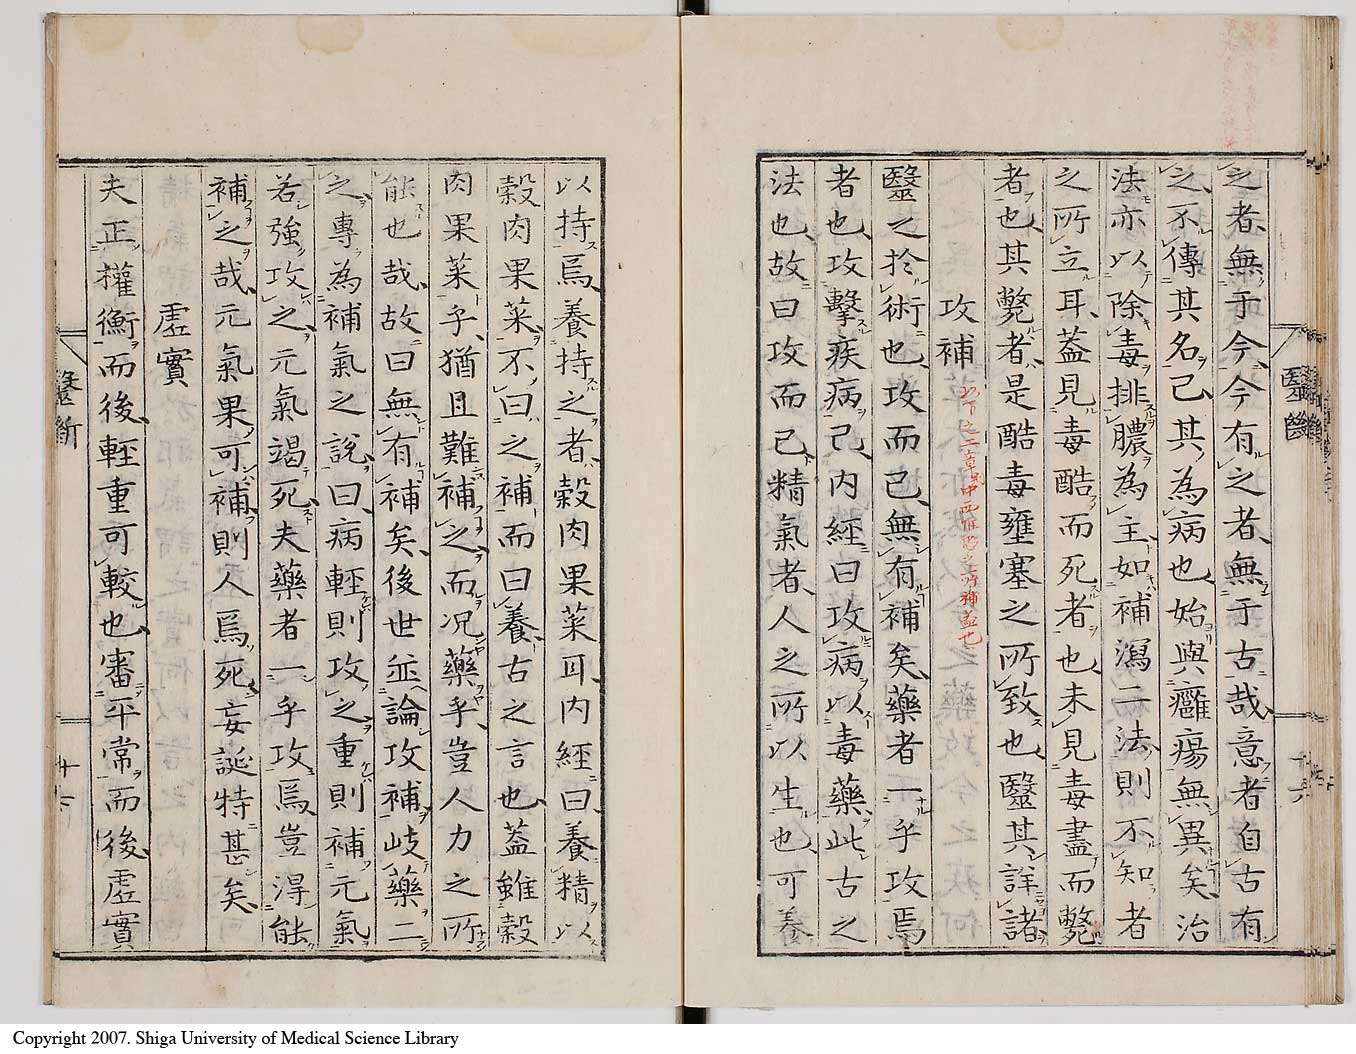 之者無于今今有之者無于古哉意者自古有
之不傳其名已其為病也始與癰瘍無異矣治
法亦以除毒排膿為主如補瀉二法則不知者
之所立耳蓋見毒酷而死者也未見毒盡而斃
者也其斃者是酷毒壅塞之所致也醫其詳諸
攻補
醫之於術也攻而已無有補矣藥者一乎攻焉
者也攻擊疾病已内經曰攻病以毒藥此古之
法也故曰攻而已精氣者人之所以生也可養
以持焉養持之者穀肉果菜耳内經曰養精以
穀肉果菜不曰之補而曰養古之言也蓋雖穀
肉果菜乎猶且難補之而况藥乎豈人力之所
能也哉故曰無有補矣後世並論攻補岐藥二
之專為補氣之說曰病輕則攻之重則補元氣
若強攻之元氣竭死夫藥者一乎攻焉豈淂能
補之哉元氣果可補則人焉死妄誕特甚矣
虛實
夫正權衡而後輕重可較也審平常而後虛實
醫斷
Copyright 2007. Shiga University of Medical Science Library